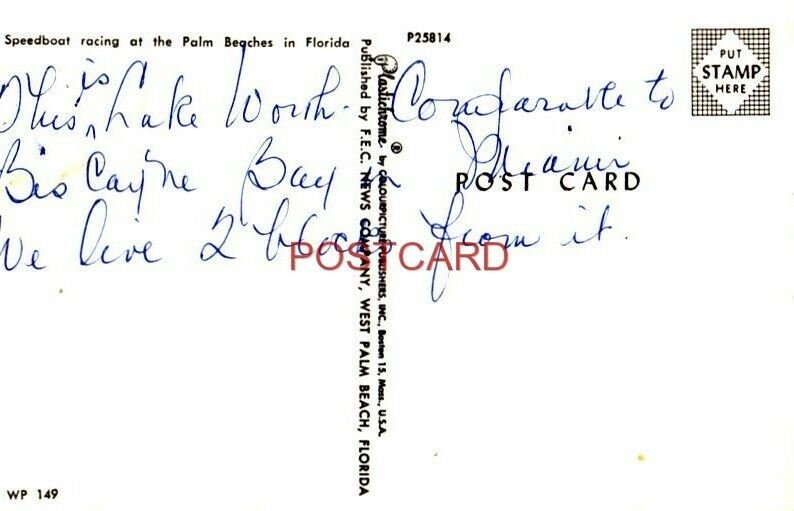 Speedboat racing at the Palm Beaches in Florida
P25814
PUT
STAMP
HERE
This is Lake Worth - Comparable to
Biscayne Bay Miami
We live 2 blocks from it.
POST CARD
POSTCARD
Plastichrome® by COLOURPICTURE PUBLISHERS, INC., Boston 15, Mass., U.S.A.
Published by F.E.C. NEWS COMPANY, WEST PALM BEACH, FLORIDA
WP 149